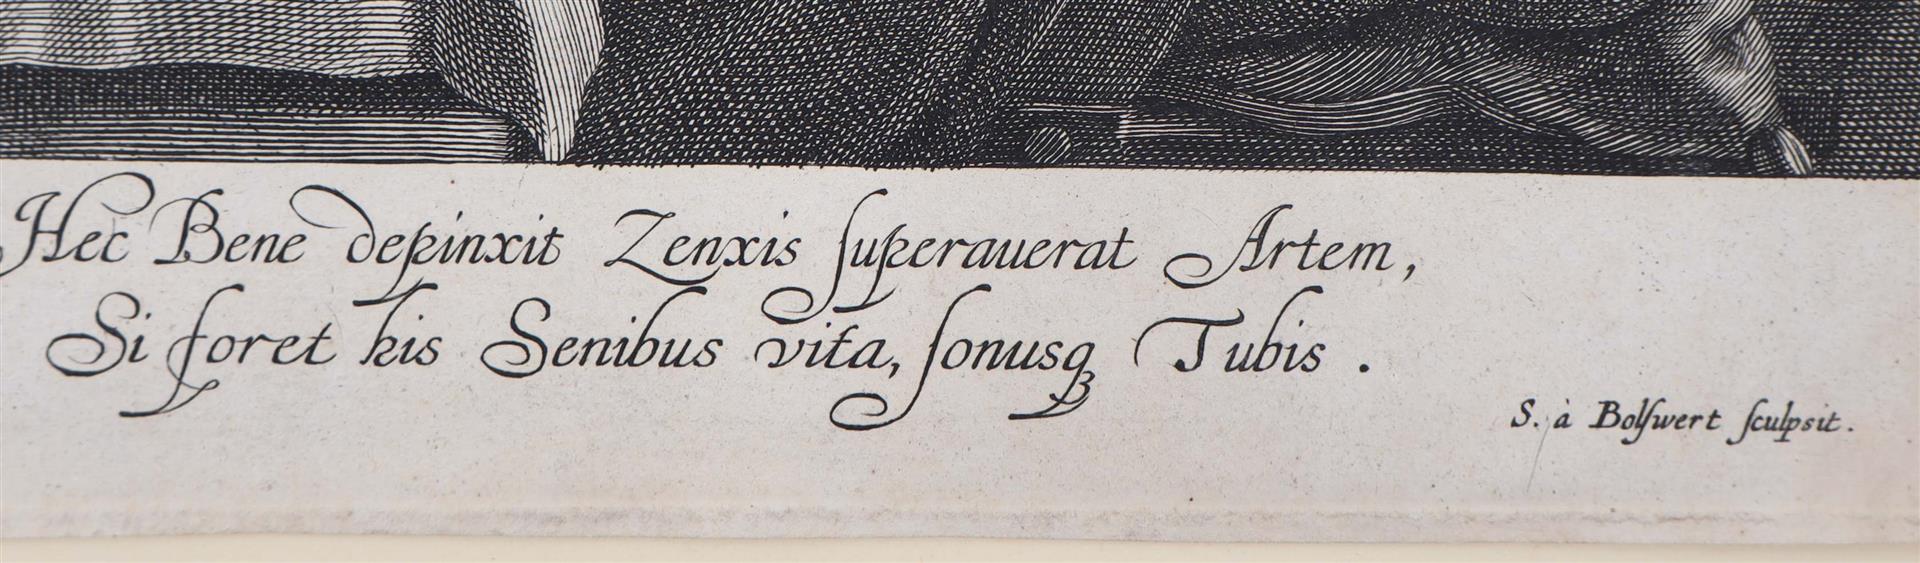 Hec Bene depinxit Zenxis ſuperauerat Artem,
Si foret his Senibus vita, ſonusqꝫ Tubis.
S. à Bolſwert ſculpsit.